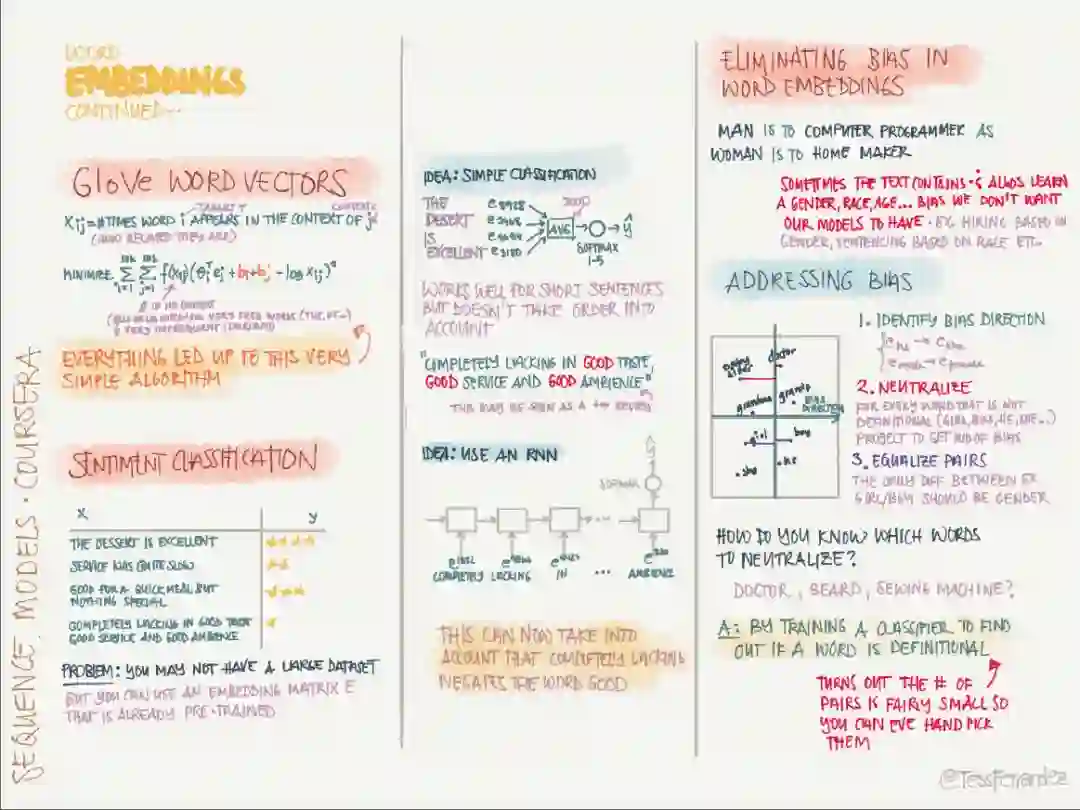 WORD
EMBEDDINGS
CONTINUED...
GloVe WORD VECTORS
TARGET CONTEXT
Xij = #TIMES WORD i APPEARS IN THE CONTEXT OF j
(HOW RELATED THEY ARE)
MINIMIZE Σ Σ f(Xij)(θiᵀej + bi + b'j - log Xij)²
i=1 j=1
EVERYTHING LED UP TO THIS VERY
SIMPLE ALGORITHM
SENTIMENT CLASSIFICATION
X y
THE DESSERT IS EXCELLENT
SERVICE WAS QUITE SLOW
GOOD FOR A QUICK MEAL BUT
NOTHING SPECIAL
COMPLETELY LACKING IN GOOD TASTE
GOOD SERVICE AND GOOD AMBIENCE
PROBLEM: YOU MAY NOT HAVE A LARGE DATASET
BUT YOU CAN USE AN EMBEDDING MATRIX E
THAT IS ALREADY PRE-TRAINED
SEQUENCE MODELS · COURSERA
IDEA: SIMPLE CLASSIFICATION
THE e8928
DESERT e2468
IS e4694
EXCELLENT e3180
300D
AVG ŷ
SOFTMAX
1-5
WORKS WELL FOR SHORT SENTENCES
BUT DOESN'T TAKE ORDER INTO
ACCOUNT
"COMPLETELY LACKING IN GOOD TASTE,
GOOD SERVICE AND GOOD AMBIENCE"
THIS MAY BE SEEN AS A ++ REVIEW
IDEA: USE AN RNN
ŷ
SOFTMAX
...
COMPLETELY LACKING IN ... AMBIENCE
THIS CAN NOW TAKE INTO
ACCOUNT THAT COMPLETELY LACKING
NEGATES THE WORD GOOD
ELIMINATING BIAS IN
WORD EMBEDDINGS
MAN IS TO COMPUTER PROGRAMMER AS
WOMAN IS TO HOME MAKER
SOMETIMES THE TEXT CONTAINS & ALGOS LEARN
A GENDER, RACE, AGE... BIAS WE DON'T WANT
OUR MODELS TO HAVE · EX. HIRING BASED ON
GENDER, SENTENCING BASED ON RACE ETC.
ADDRESSING BIAS
doctor
grandma grandpa
BIAS
DIRECTION
girl boy
she he
1. IDENTIFY BIAS DIRECTION
ehe → eshe
emale → efemale
2. NEUTRALIZE
FOR EVERY WORD THAT IS NOT
DEFINITIONAL (GIRL, BOY, HE, SHE...)
PROJECT TO GET RID OF BIAS
3. EQUALIZE PAIRS
THE ONLY DIFF BETWEEN EX
GIRL/BOY SHOULD BE GENDER
HOW DO YOU KNOW WHICH WORDS
TO NEUTRALIZE?
DOCTOR, BEARD, SEWING MACHINE?
A: BY TRAINING A CLASSIFIER TO FIND
OUT IF A WORD IS DEFINITIONAL
TURNS OUT THE # OF
PAIRS IS FAIRLY SMALL SO
YOU CAN EVE HAND PICK
THEM
@TessFerrandez